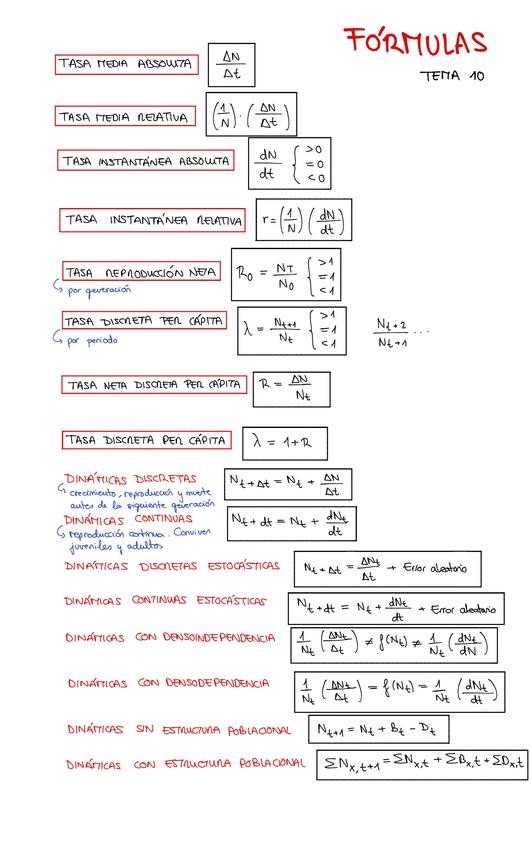 FÓRMULAS
TEMA 10
TASA MEDIA ABSOLUTA ΔN/Δt
TASA MEDIA RELATIVA (1/N) · (ΔN/Δt)
TASA INSTANTÁNEA ABSOLUTA dN/dt { >0 =0 <0
TASA INSTANTÁNEA RELATIVA r = (1/N) (dN/dt)
TASA REPRODUCCIÓN NETA R₀ = N_T/N₀ { >1 =1 <1
por generación
TASA DISCRETA PER CÁPITA λ = N_{t+1}/N_t { >1 =1 <1 N_{t+2}/N_{t+1} ...
por periodo
TASA NETA DISCRETA PER CÁPITA R = ΔN/N_t
TASA DISCRETA PER CÁPITA λ = 1+R
DINÁMICAS DISCRETAS N_{t+Δt} = N_t + ΔN/Δt
crecimiento, reproducción y muerte
antes de la siguiente generación
DINÁMICAS CONTINUAS N_{t+dt} = N_t + dN_t/dt
reproducción continua. Conviven
juveniles y adultos
DINÁMICAS DISCRETAS ESTOCÁSTICAS N_{t+Δt} = ΔN_t/Δt + Error aleatorio
DINÁMICAS CONTINUAS ESTOCÁSTICAS N_{t+dt} = N_t + dN_t/dt + Error aleatorio
DINÁMICAS CON DENSOINDEPENDENCIA 1/N_t (ΔN_t/Δt) ≠ f(N_t) ≠ 1/N_t (dN_t/dN)
DINÁMICAS CON DENSODEPENDENCIA 1/N_t (ΔN_t/Δt) = f(N_t) = 1/N_t (dN_t/dt)
DINÁMICAS SIN ESTRUCTURA POBLACIONAL N_{t+1} = N_t + B_t - D_t
DINÁMICAS CON ESTRUCTURA POBLACIONAL ΣN_{x,t+1} = ΣN_{x,t} + ΣB_{x,t} + ΣD_{x,t}